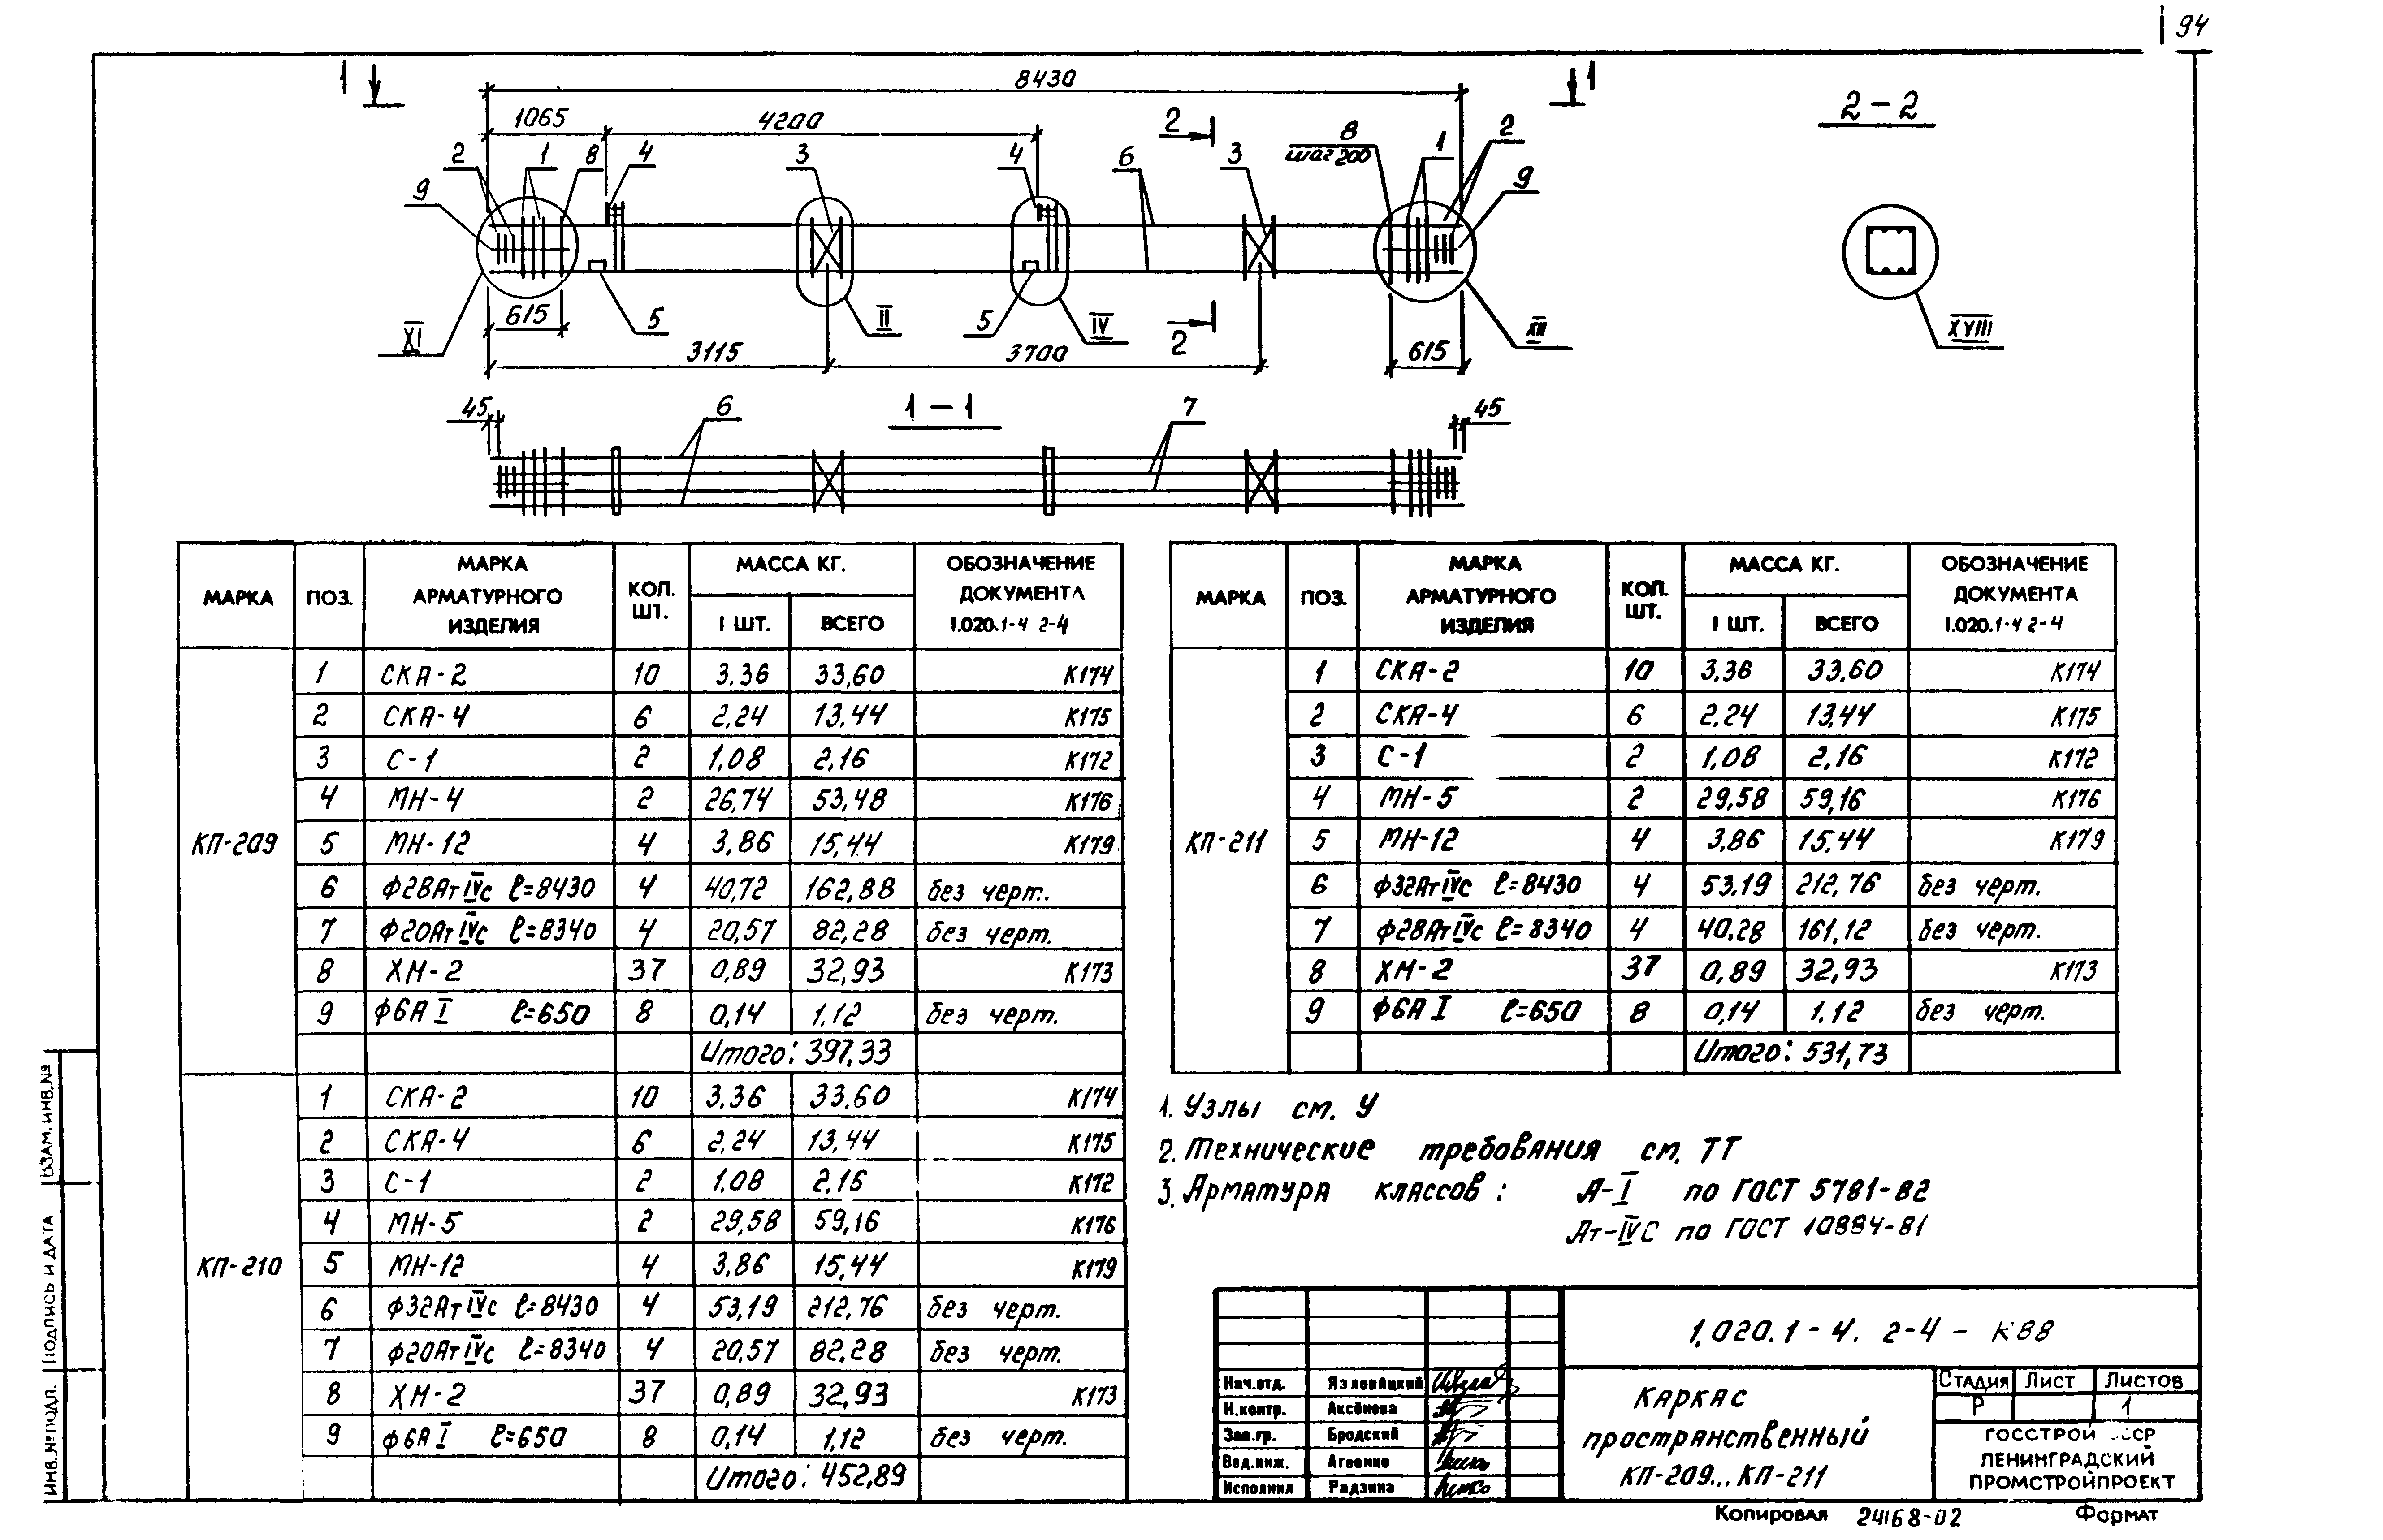 94
1 1
8430
1065 4200 2 2-2
8 шаг 200 2
2 1 8 4 3 4 6 3 1
9 9
615 5 II 5 IV 2 XII XVIII
XI 3115 3700 615
45 6 1-1 7 45
МАРКА ПОЗ. МАРКА АРМАТУРНОГО ИЗДЕЛИЯ КОЛ. ШТ. МАССА КГ. ОБОЗНАЧЕНИЕ ДОКУМЕНТА 1.020.1-4 2-4
1 ШТ. ВСЕГО
КП-209
1 СКА-2 10 3,36 33,60 К174
2 СКА-4 6 2,24 13,44 К175
3 С-1 2 1,08 2,16 К172
4 МН-4 2 26,74 53,48 К176
5 МН-12 4 3,86 15,44 К179
6 ф28АтIVс ℓ=8430 4 40,72 162,88 без черт.
7 ф20АтIVс ℓ=8340 4 20,57 82,28 без черт.
8 ХМ-2 37 0,89 32,93 К173
9 ф6А I ℓ=650 8 0,14 1,12 без черт.
Итого: 397,33
КП-210
1 СКА-2 10 3,36 33,60 К174
2 СКА-4 6 2,24 13,44 К175
3 С-1 2 1,08 2,16 К172
4 МН-5 2 29,58 59,16 К176
5 МН-12 4 3,86 15,44 К179
6 ф32АтIVс ℓ=8430 4 53,19 212,76 без черт.
7 ф20АтIVс ℓ=8340 4 20,57 82,28 без черт.
8 ХМ-2 37 0,89 32,93 К173
9 ф6А I ℓ=650 8 0,14 1,12 без черт.
Итого: 452,89
МАРКА ПОЗ. МАРКА АРМАТУРНОГО ИЗДЕЛИЯ КОЛ. ШТ. МАССА КГ. ОБОЗНАЧЕНИЕ ДОКУМЕНТА 1.020.1-4 2-4
1 ШТ. ВСЕГО
КП-211
1 СКА-2 10 3,36 33,60 К174
2 СКА-4 6 2,24 13,44 К175
3 С-1 2 1,08 2,16 К172
4 МН-5 2 29,58 59,16 К176
5 МН-12 4 3,86 15,44 К179
6 ф32АтIVс ℓ=8430 4 53,19 212,76 без черт.
7 ф28АтIVс ℓ=8340 4 40,28 161,12 без черт.
8 ХМ-2 37 0,89 32,93 К173
9 ф6А I ℓ=650 8 0,14 1,12 без черт.
Итого: 531,73
1. Узлы см. У
2. Технические требования см. ТТ
3. Арматура классов: А-I по ГОСТ 5781-82
Ат-IVС по ГОСТ 10884-81
1.020.1-4. 2-4-К88
Нач.отд. Язловицкий
Н.контр. Аксёнова
Зав.гр. Бродский
Вед.инж. Агеенко
Исполнил Радзина
КАРКАС
пространственный
КП-209...КП-211
СТАДИЯ ЛИСТ ЛИСТОВ
Р 1
ГОССТРОЙ СССР
ЛЕНИНГРАДСКИЙ
ПРОМСТРОЙПРОЕКТ
Копировал 24168-02 Формат
ИНВ.№ ПОДЛ. ПОДПИСЬ И ДАТА ВЗАМ. ИНВ.№